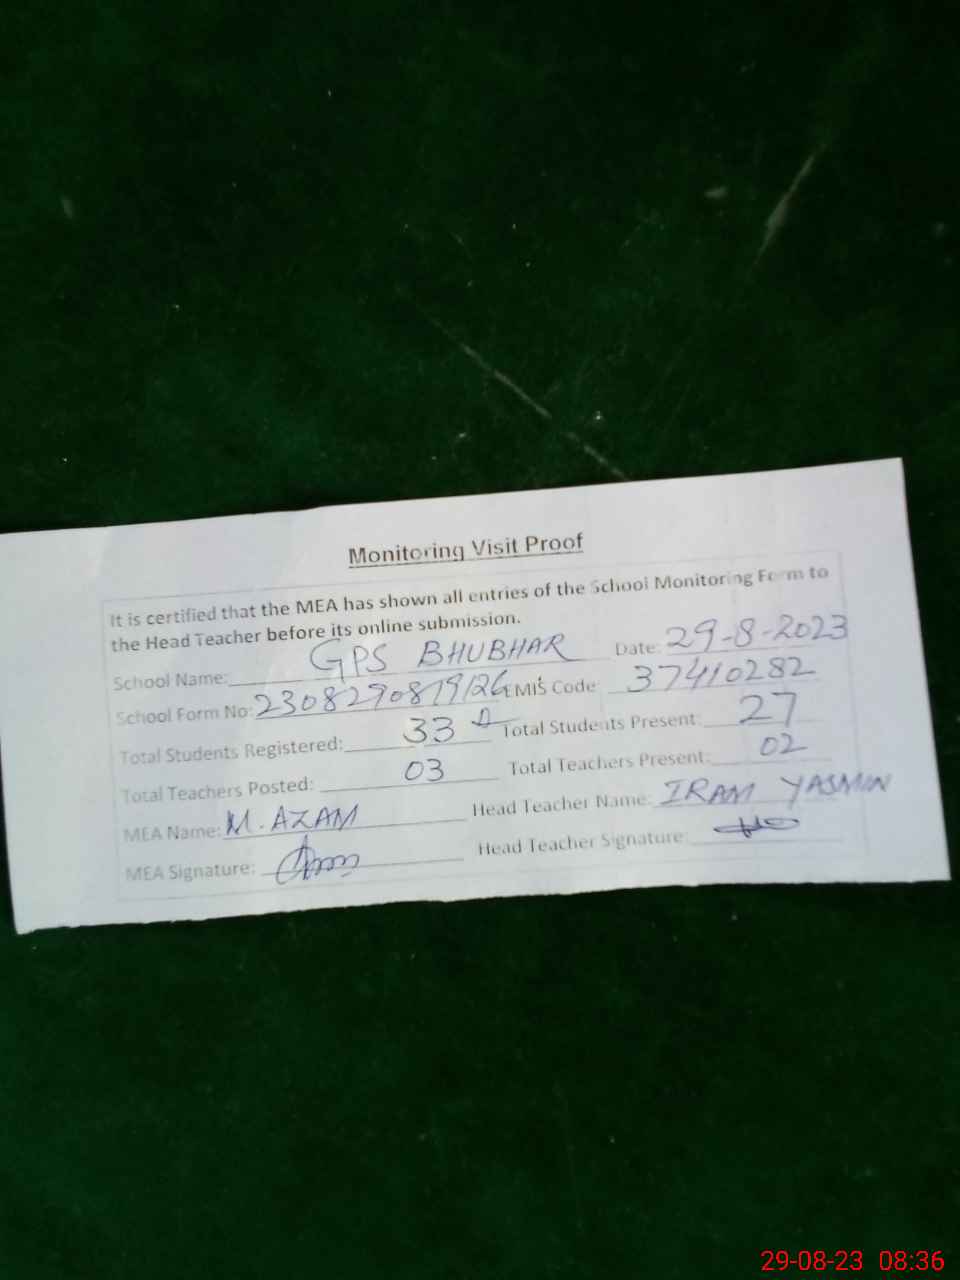 Monitoring Visit Proof
It is certified that the MEA has shown all entries of the School Monitoring Form to
the Head Teacher before its online submission.
School Name: GPS BHUBHAR Date: 29-8-2023
School Form No: 230829081926 EMIS Code: 37410282
Total Students Registered: 33 Total Students Present: 27
Total Teachers Posted: 03 Total Teachers Present: 02
MEA Name: M. AZAM Head Teacher Name: IRAM YASMIN
MEA Signature: Head Teacher Signature:
29-08-23 08:36